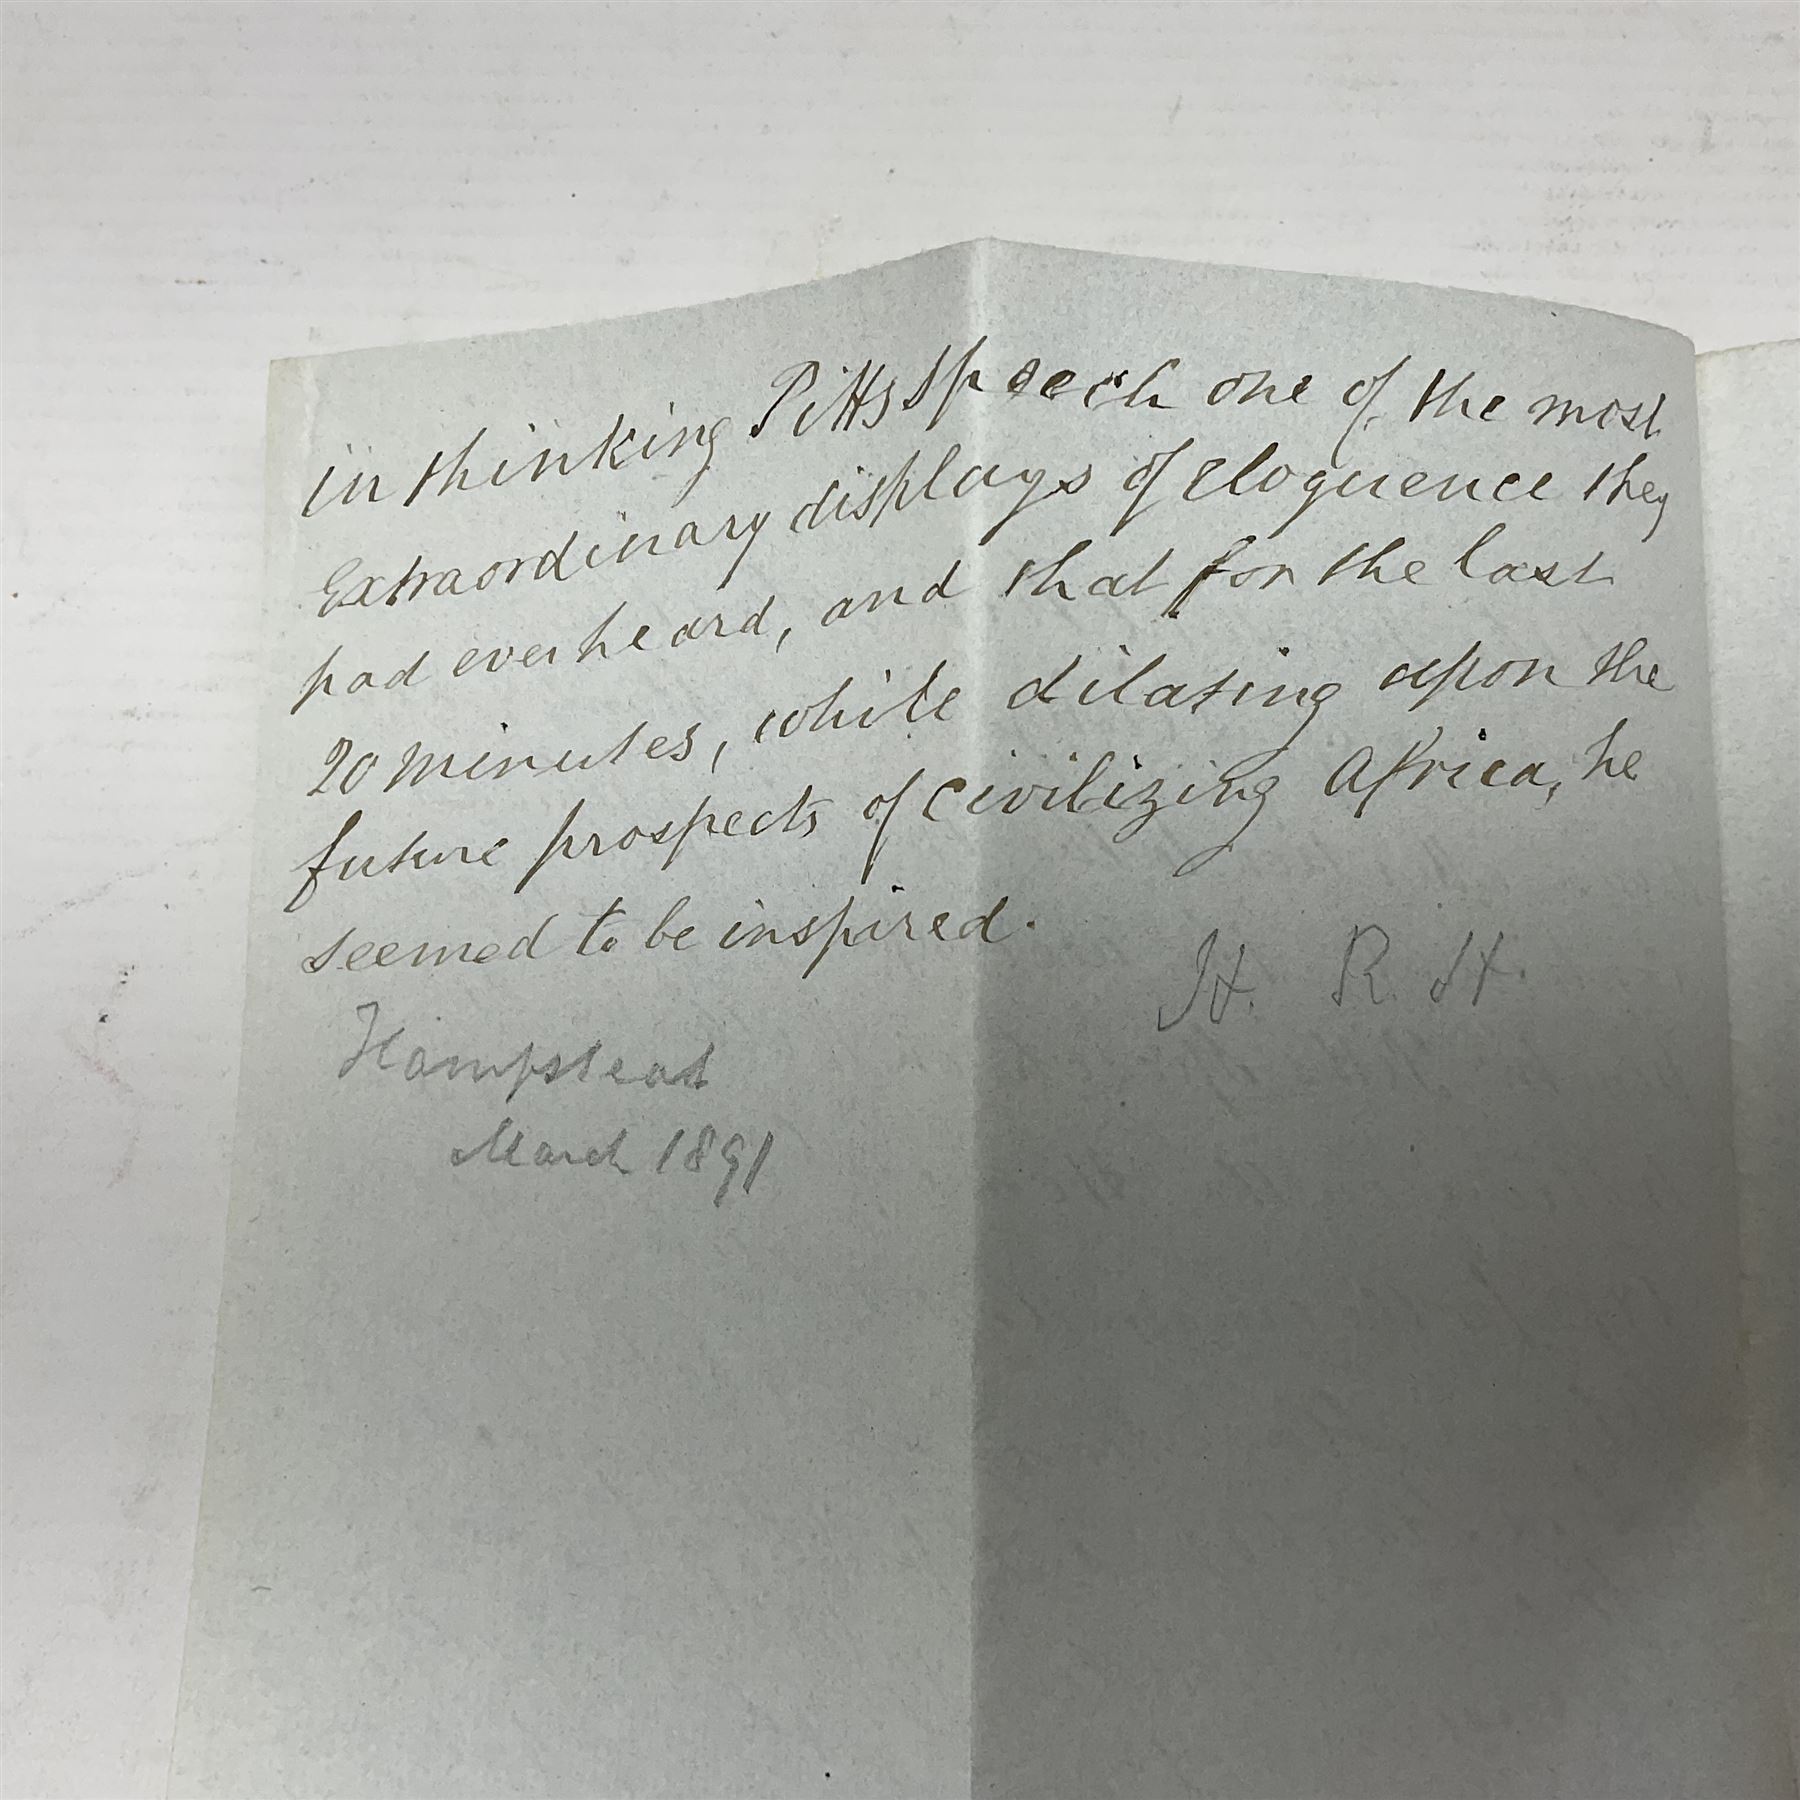 in thinking Pitts speech one of the most
Extraordinary displays of eloquence they
had ever heard, and that for the last
20 minutes, while dilating upon the
future prospects of civilizing Africa, he
seemed to be inspired.
H. R. H.
Hampstead
March 1891